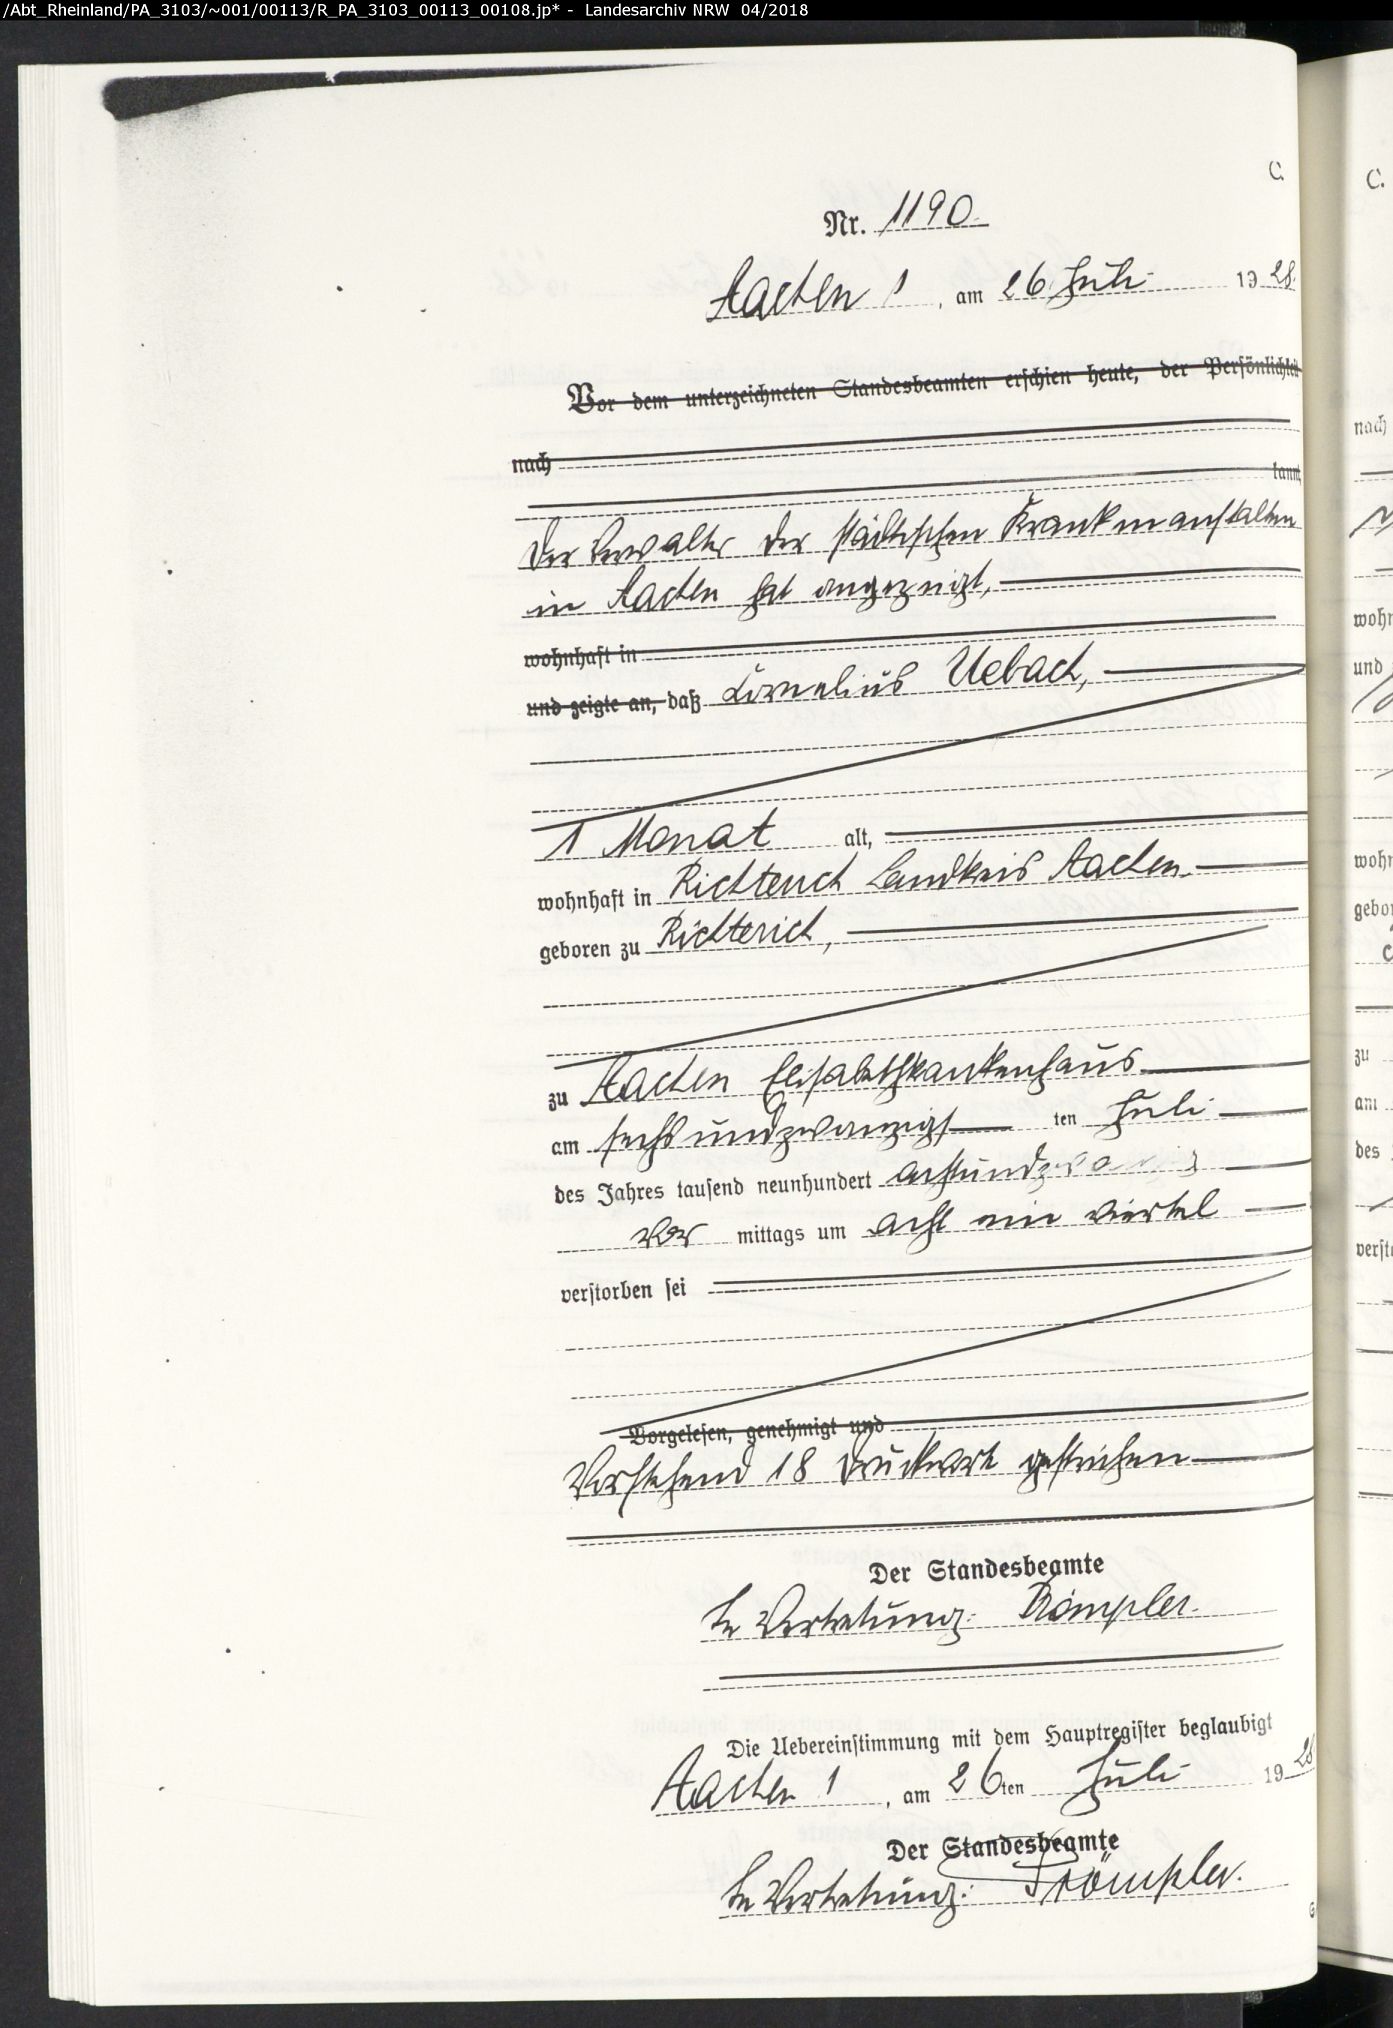 /Abt_Rheinland/PA_3103/~001/00113/R_PA_3103_00113_00108.jp* - Landesarchiv NRW 04/2018
C.
Nr. 1190.
Aachen 1, am 26. Juli 1928.
Vor dem unterzeichneten Standesbeamten erschien heute, der Persönlichkeit
nach
kannt,
Der Verwalter der städtischen Krankenanstalten
in Aachen hat angezeigt,
wohnhaft in
und zeigte an, daß Cornelius Uebach,
1 Monat alt,
wohnhaft in Richterich Landkreis Aachen
geboren zu Richterich,
zu Aachen Elisabethkrankenhaus
am sechsundzwanzigsten Juli
des Jahres tausend neunhundert achtundzwanzig
vor mittags um acht ein viertel
verstorben sei
Vorgelesen, genehmigt und
Vorstehend 18 Druckworte gestrichen
Der Standesbeamte
In Vertretung: Trömpler.
Die Uebereinstimmung mit dem Hauptregister beglaubigt
Aachen 1, am 26ten Juli 1928
Der Standesbeamte
In Vertretung: Trömpler.
C.
nach
wohn
und
wohn
gebor
zu
am
des
verst